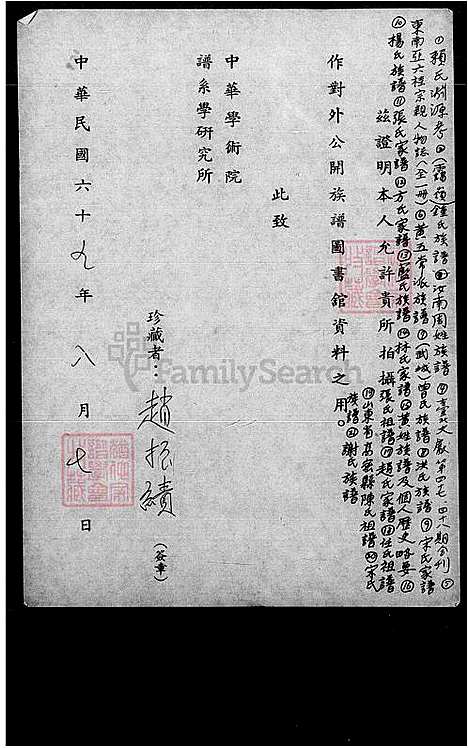 ①賴氏淵源考②(霞嶺)鍾氏族譜③汝南周姓族譜④臺北文獻第四七、四十八期合刊⑤
東南亞六桂宗親人物誌(全一冊)⑥黃五常派族譜⑦(武城)曾氏族譜⑧洪氏族譜⑨宋氏家譜
⑩楊氏族譜⑪張氏家譜⑫方氏家譜⑬藍氏族譜⑭林氏家譜⑮黃姓族譜及個人歷史略要⑯
茲證明本人允許貴所拍攝張氏祖譜⑰趙氏家譜⑱任氏祖譜
⑲山東省高密縣陳氏祖譜⑳宋氏
族譜㉑謝氏族譜
作對外公開族譜圖書館資料之用。
此致
中華學術院
譜系學研究所
珍藏者:趙振績(簽章)
中華民國六十九年八月七日
FamilySearch